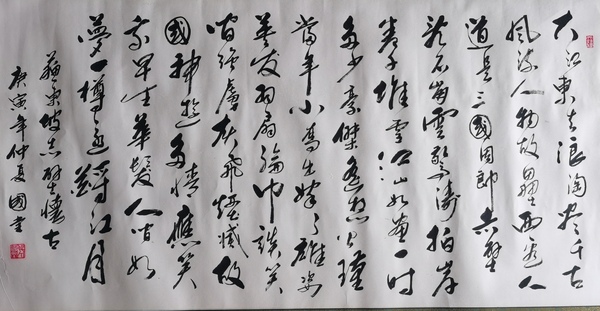 大江東去浪淘尽千古
風流人物故壘西邊人
道是三國周郎赤壁
亂石崩雲驚濤拍岸
卷千堆雪江山如畫一时
多少豪傑遙想公瑾
當年小喬出嫁了雄姿
英发羽扇綸巾談笑
间強虜灰飛煙滅故
國神遊多情應笑
我早生華髮人间如
夢一樽還酹江月
蘇東坡赤壁懷古
庚寅年仲夏國書